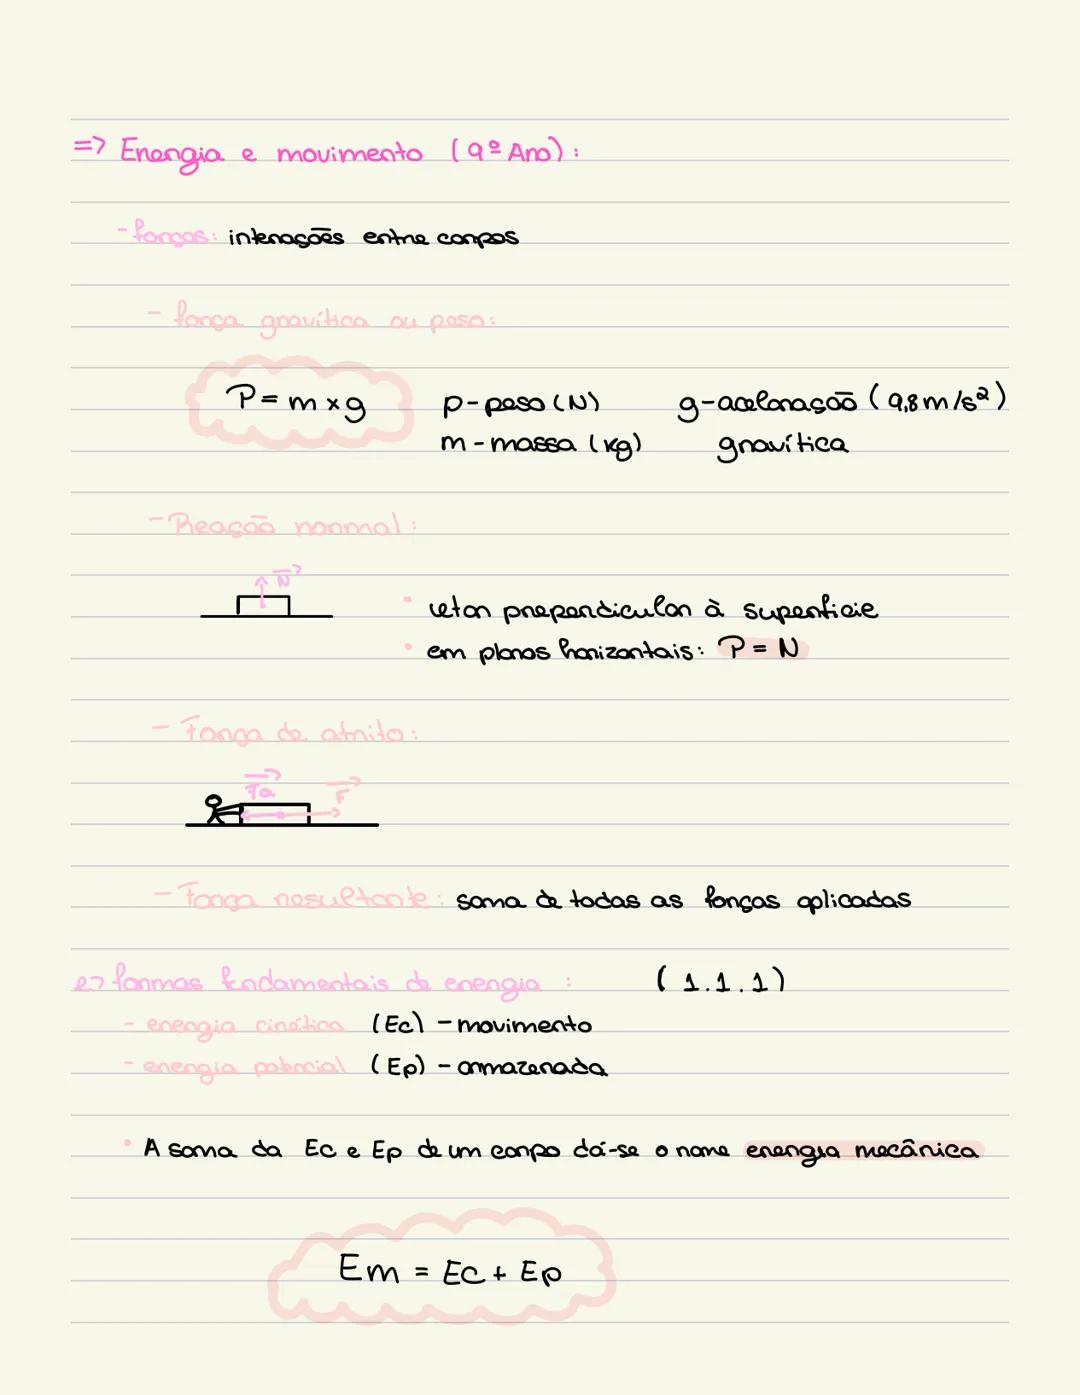 => Energia e movimento (9º Ano):
- forças: interações entre corpos
- força gravítica ou peso:
P = m x g p - peso (N) g - aceleração (9,8 m/s²)
m - massa (kg) gravítica
- Reação normal:
N
• vetor prependicular à superfície
• em planos horizontais: P = N
- Força de atrito:
Fa F
- Força resultante: soma de todas as forças aplicadas
=> formas fundamentais de energia : (1.1.1)
- energia cinética (Ec) - movimento
- energia potencial (Ep) - armazenada
• A soma da Ec e Ep de um corpo dá-se o nome energia mecânica
Em = Ec + Ep